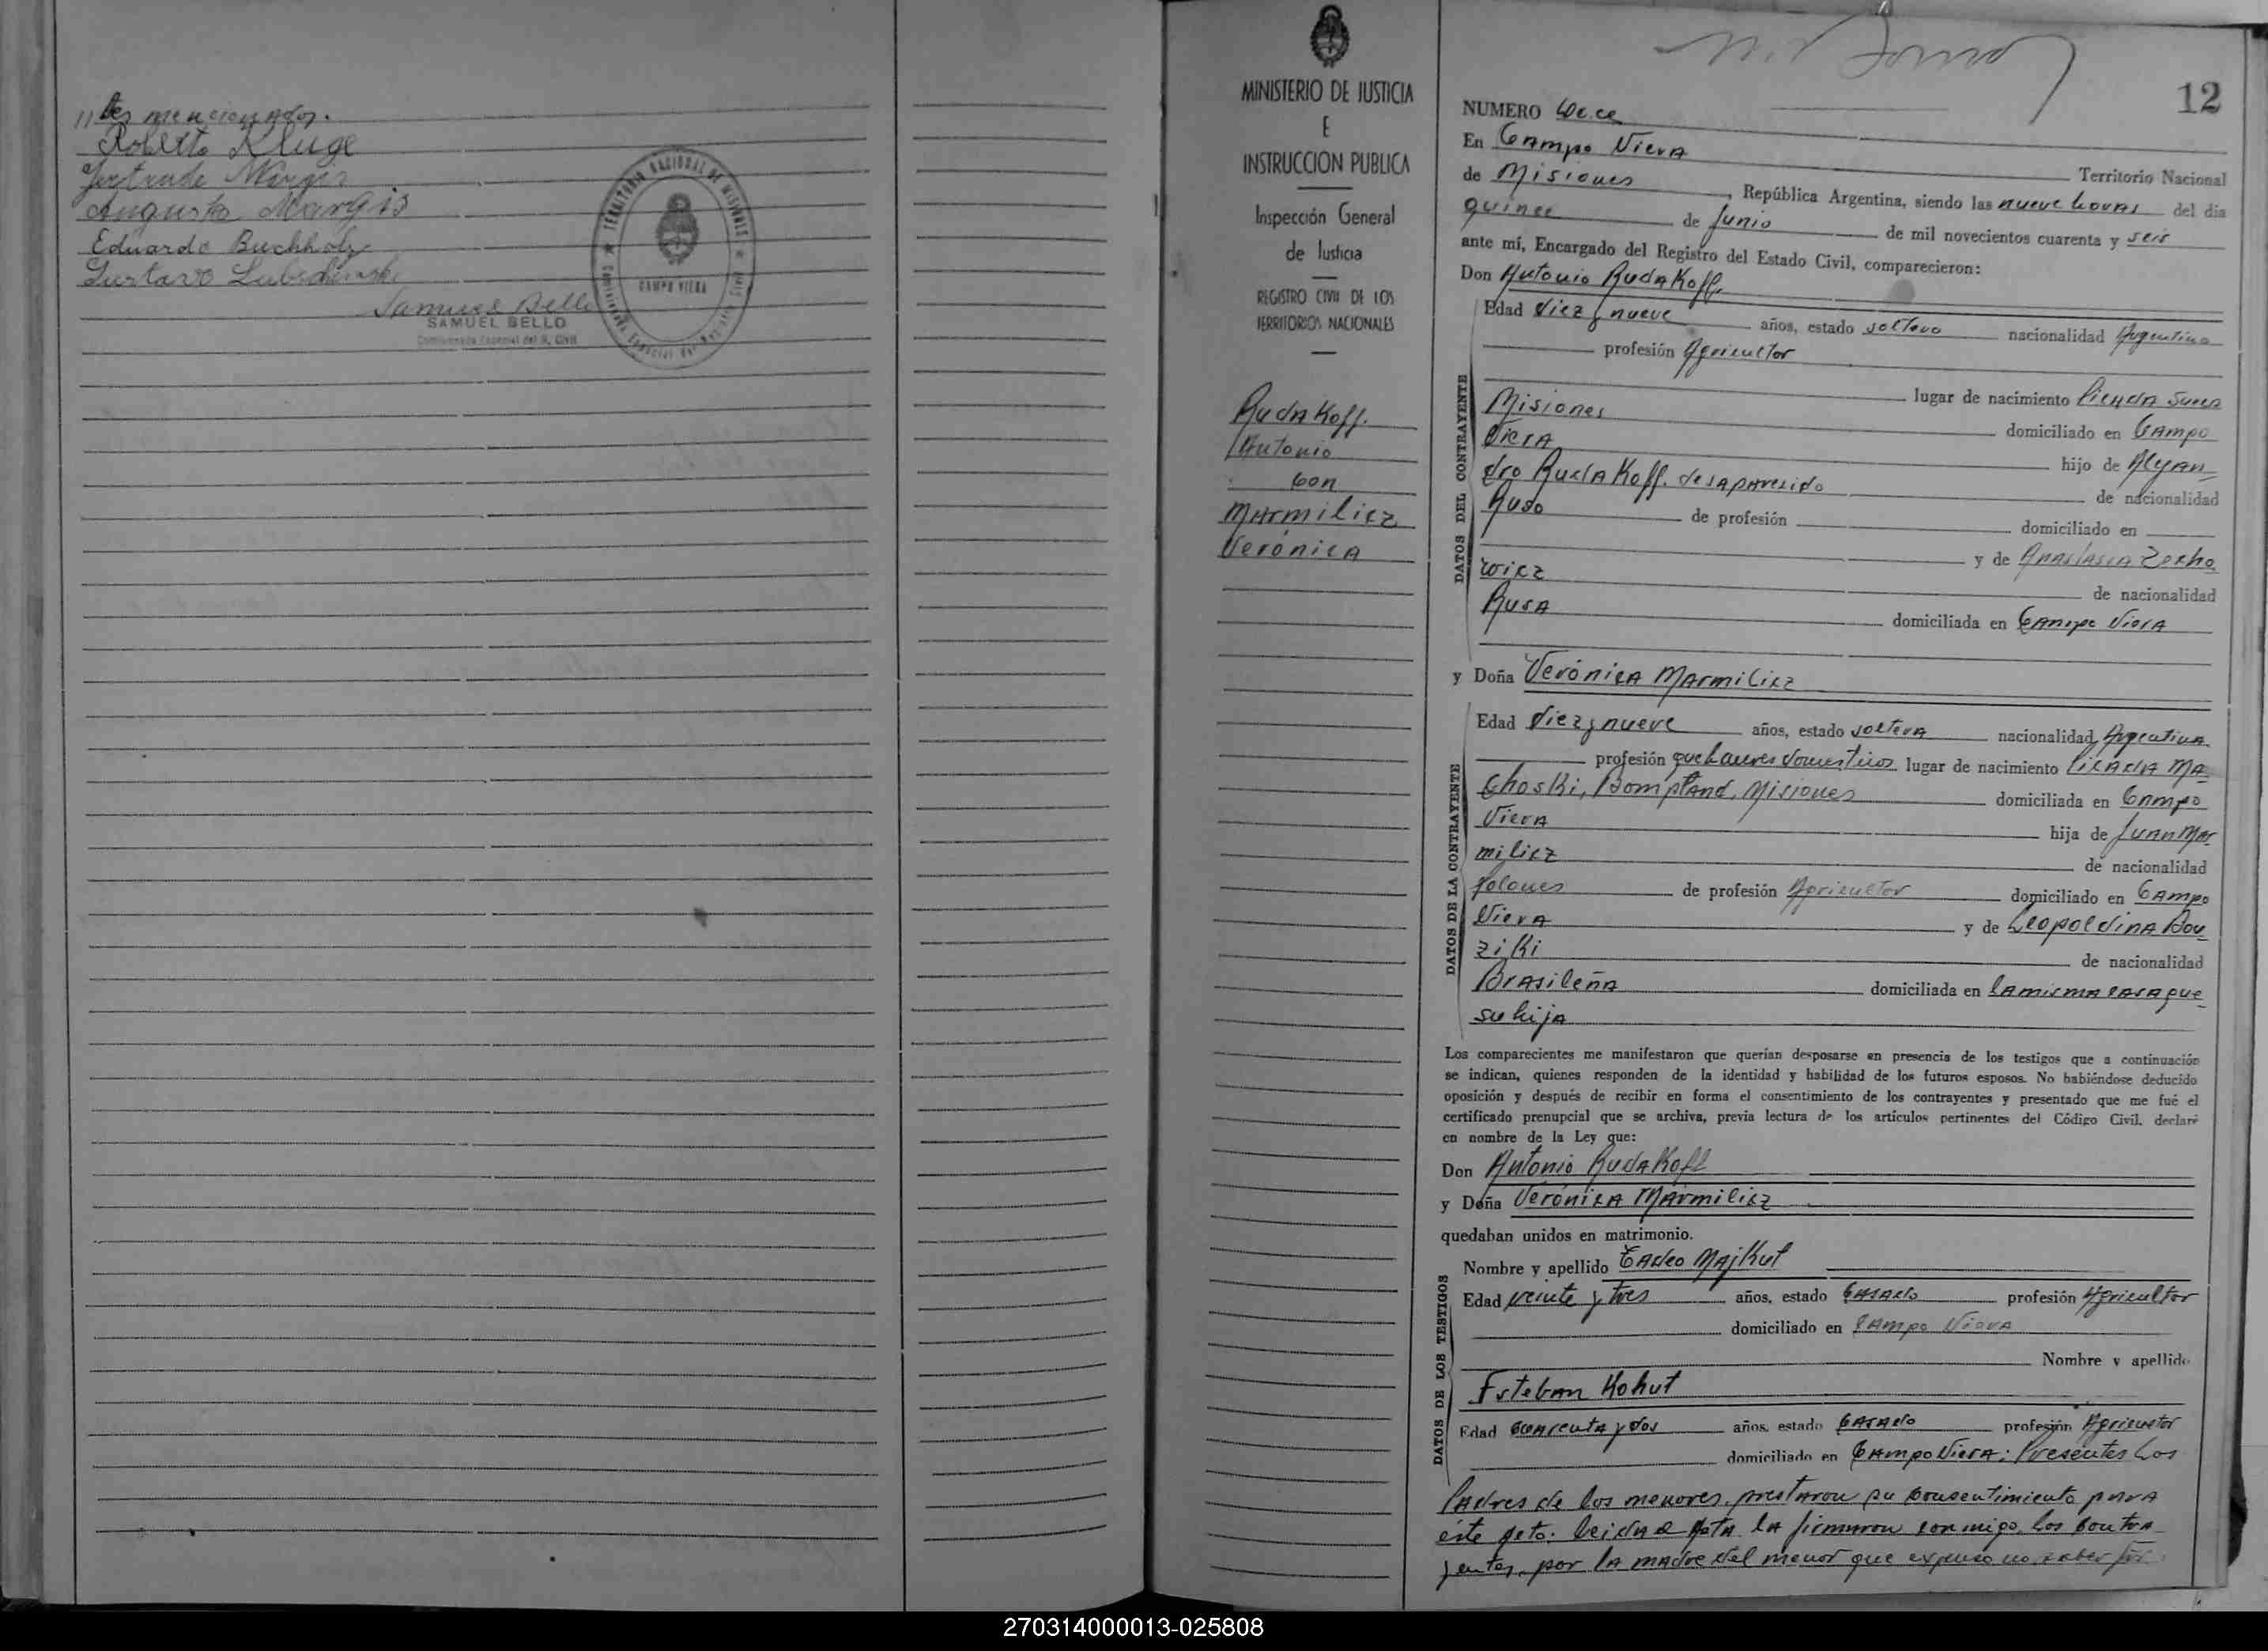 //tes mencionados.
Roberto Kluge
Gertrude Margis
Augusto Margis
Eduardo Buchholz
Gustavo
Samuel Bello
SAMUEL BELLO
Comisionado Especial del R. Civil
TERRITORIO NACIONAL DE MISIONES
CAMPO VIERA
MINISTERIO DE JUSTICIA
E
INSTRUCCION PUBLICA
Inspección General
de Justicia
REGISTRO CIVIL DE LOS
TERRITORIOS NACIONALES
Rudakoff.
Antonio
con
Marmilicz
Verónica
12
NUMERO Doce
En Campo Viera
Territorio Nacional
de Misiones, República Argentina, siendo las nueve horas del dia
quince de Junio de mil novecientos cuarenta y seis
ante mí, Encargado del Registro del Estado Civil, comparecieron:
Don Antonio Rudakoff.
DATOS DEL CONTRAYENTE
Edad diez y nueve años, estado soltero nacionalidad Argentina
profesión Agricultor
lugar de nacimiento Picada
Misiones domiciliado en Campo
Viera hijo de Alejan-
dro Rudakoff. desaparecido de nacionalidad
Ruso de profesión domiciliado en
y de Anastasia Zocho
wicz de nacionalidad
Rusa domiciliada en Campo Viera
y Doña Verónica Marmilicz
DATOS DE LA CONTRAYENTE
Edad diez y nueve años, estado soltera nacionalidad Argentina
profesión quehaceres domesticos lugar de nacimiento Picada Ma-
choski, Bompland, Misiones domiciliada en Campo
Viera hija de Juan Mar
milicz de nacionalidad
Polones de profesión Agricultor domiciliado en Campo
Viera y de Leopoldina
ziki de nacionalidad
Brasileña domiciliada en la misma casa que
su hija
Los comparecientes me manifestaron que querían desposarse en presencia de los testigos que a continuación
se indican, quienes responden de la identidad y habilidad de los futuros esposos. No habiéndose deducido
oposición y después de recibir en forma el consentimiento de los contrayentes y presentado que me fué el
certificado prenupcial que se archiva, previa lectura de los artículos pertinentes del Código Civil, declaré
en nombre de la Ley que:
Don Antonio Rudakoff
y Doña Verónica Marmilicz
quedaban unidos en matrimonio.
DATOS DE LOS TESTIGOS
Nombre y apellido Tadeo Majkut
Edad veinte y tres años, estado casado profesión Agricultor
domiciliado en Campo Viera
Nombre y apellido
Esteban Kohut
Edad cuarenta y dos años, estado casado profesión Agricultor
domiciliado en Campo Viera: Presentes los
Padres de los menores, prestaron su consentimiento para
éste acto: leida el Acta la firmaron conmigo, los contra-
yentes, por la madre del menor que expuso no saber
270314000013-025808